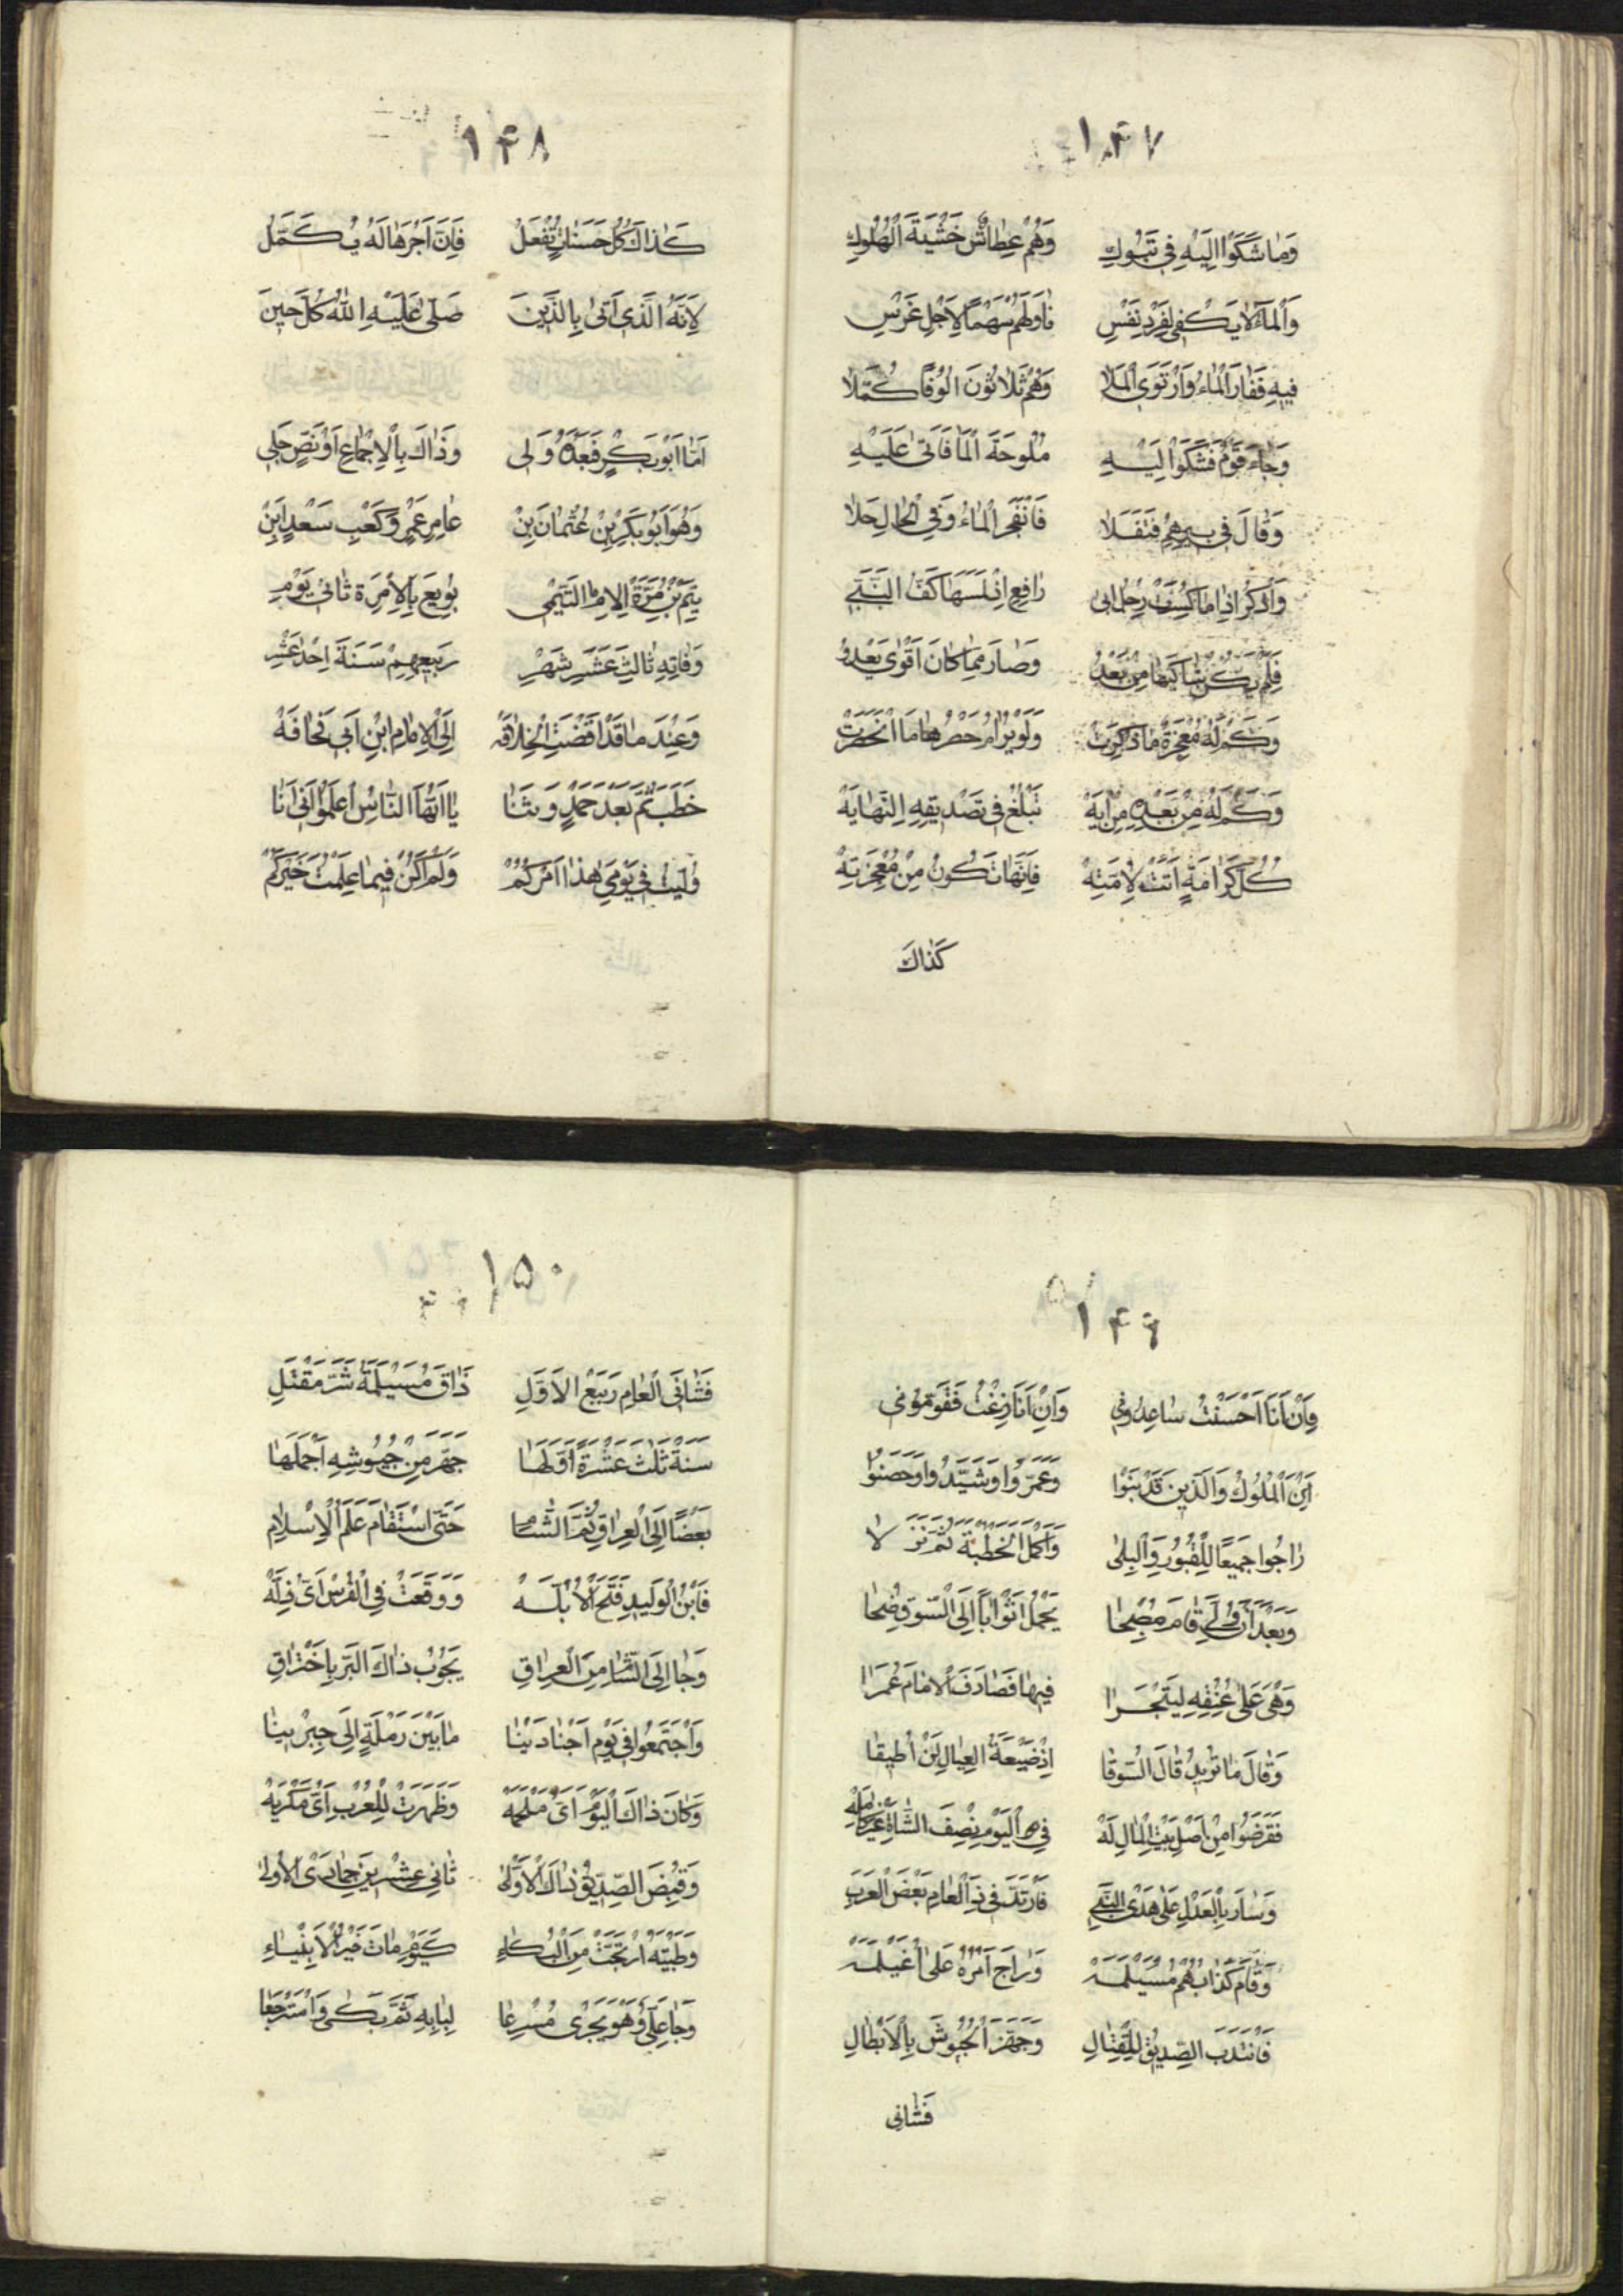 ١۴٧
وَمَا شَكَوْا اِلَيْهِ فِي تَبُوكِ وَهُمْ عِطَاشٌ خَشْيَةَ الْهُلُوكِ
وَالْمَاءُ لَا يَكْفِي لِفَرْدِ نَفْسِ نَاوَلَهُمْ سَهْمًا لِاَجْلِ غَرْسِ
فِيهِ فَفَارَ الْمَاءُ وَارْتَوَى الْمَلَا وَهُمْ ثَلَاثُونَ الُوفًا كُمَّلَا
وَجَاءَ قَوْمٌ فَشَكَوْا اِلَيْهِ مُلُوحَةَ الْمَا فَاَتَى عَلَيْهِ
وَقَالَ فِي بِيرِهِمُ فَتَفَلَا فَانْفَجَرَ الْمَاءُ وَفِي الْحَالِ حَلَا
وَاذْكُرْ اِذَا مَا كُسِفَتْ رِجْلُ ابِي رَافِعٍ اِذْ لَمَسَهَا كَفُّ النَّبِي
فَلَمْ يَكُنْ شَاكِيَهَا مِنْ بَعْدُ وَصَارَ مِمَّا كَانَ اَقْوَى بَعْدُ
وَكَمْ لَهُ مُعْجِزَةٌ مَا ذُكِرَتْ وَلَوْ يُرَامُ حَصْرُهَا مَا انْحَصَرَتْ
وَكَمْ لَهُ مِنْ بَعْدِهِ مِنْ اٰيَهْ تَبْلُغُ فِي تَصْدِيقِهِ النَّهَايَهْ
كُلُّ كَرَامَةٍ اَتَتْ لِاُمَّتِهْ فَاِنَّهَا تَكُونُ مِنْ مُعْجِزَتِهْ
كَذَاكَ
١۴٨
كَذَاكَ كُلُّ حَسَنَاتٍ تُفْعَلُ فَاِنَّ اَجْرَهَا لَهُ يُكَمَّلُ
لِاَنَّهُ الَّذِي اَتَى بِالدِّينَ صَلَّى عَلَيْهِ اللّٰهُ كُلَّ حِينَ
اَمَّا اَبُو بَكْرٍ فَبَعْدَهُ وَلِى وَذَاكَ بِالْاِجْمَاعِ اَوْ نَصٍّ جَلِي
وَهُوَ اَبُو بَكْرِ بْنِ عُثْمَانَ بِنْ عَامِرِ عَمْرٍو كَعْبِ سَعْدٍ ابْنِ
تَيْمٍ بْنِ مُرَّةَ الْاِمَامُ التَّيْمِي بُويِعَ بِالْاِمْرَةِ ثَانِي يَوْمِ
وَفَاتِهِ ثَالِثَ عَشَرِ شَهْرِ رَبِيعِهِمْ سَنَةَ اِحْدَى عَشْرِ
وَعِنْدَ مَا قَدْ اَفْضَتِ الْخِلَافَهْ اِلَى الْاِمَامِ ابْنِ اَبِي قُحَافَهْ
خَطَبَ ثُمَّ بَعْدَ حَمْدٍ وَثَنَا يَا اَيُّهَا النَّاسُ اعْلَمُوا اَنِّي اَنَا
وُلِّيتُ فِي يَوْمِي هٰذَا اَمْرَكُمْ وَلَمْ اَكُنْ فِيمَا عَلِمْتُ خَيْرَكُمْ
١۴٩
فَاِنْ اَنَا اَحْسَنْتُ سَاعِدُونِي وَاِنْ اَنَا زِغْتُ فَقَوِّمُونِي
اَيْنَ الْمُلُوكُ وَالَّذِينَ قَدْ بَنَوْا وَعَمَّرُوا وَشَيَّدُوا وَحَصَّنُوا
رَاحُوا جَمِيعًا لِلْقُبُورِ وَالْبِلَى وَاَكْمَلَ الْخُطْبَةَ ثُمَّ نَزَلَا
وَبَعْدَ اَنْ وُلِّيَ قَامَ مُصْبِحَا يَحْمِلُ اَثْوَابًا اِلَى السُّوقِ ضُحَا
وَهْيَ عَلَى عُنُقِهِ لِيَتْجَرَا فِيهَا فَصَادَفَ الْاِمَامَ عُمَرَا
وَقَالَ مَا تُرِيدُ قَالَ السُّوقَا اِذْ ضَيْعَةَ الْعِيَالِ لَنْ اُطِيقَا
فَفَرَضُوا مِنْ اَصْلِ بَيْتِ الْمَالِ لَهْ فِي الْيَوْمِ نِصْفَ الشَّاةِ غَيْرَ كَامِلَهْ
وَسَارَ بِالْعَدْلِ عَلَى هَدْيِ النَّبِي فَارْتَدَّ فِي ذَا الْعَامِ بَعْضُ الْعَرَبِ
وَقَامَ كَذَّابُهُمُ مُسَيْلَمَهْ وَرَاجَ اَمْرُهُ عَلَى اُغَيْلَمَهْ
فَانْتَدَبَ الصِّدِّيقُ لِلْقِتَالِ وَجَهَّزَ الْجُيُوشَ بِالْاَبْطَالِ
فَثَانِي
١۵٠
فَثَانِيَ الْعَامِ رَبِيعَ الْاَوَّلِ ذَاقَ مُسَيْلَمَةُ شَرَّ مَقْتَلِ
سَنَةَ ثَلٰثَ عَشْرَةٍ اَوَّلَهَا جَهَّزَ مِنْ جُيُوشِهِ اَجْمَلَهَا
بَعْضًا اِلَى الْعِرَاقِ ثُمَّ الشَّامِ حَتَّى اسْتَقَامَ عَلَمُ الْاِسْلَامِ
فَابْنُ الْوَلِيدِ فَتَحَ الْاُبُلَّهْ وَوَقَعَتْ فِي الْفُرْسِ اَيُّ فِلَّهْ
وَجَا اِلَى الشَّامِ مِنَ الْعِرَاقِ يَجُوبُ ذَاكَ الْبَرَّ بِاخْتِرَاقِ
وَاجْتَمَعُوا فِي يَوْمِ اَجْنَادَيْنَا مَا بَيْنَ رَمْلَةٍ اِلَى جِبْرِينَا
وَكَانَ ذَاكَ الْيَوْمَ اَيُّ مَلْحَمَهْ وَظَهَرَتْ لِلْعُرْبِ اَيُّ مَكْرُمَهْ
وَقُبِضَ الصِّدِّيقُ ذَاكَ الْاَوَّلَى ثَانِي عِشْرِينَ جُمَادَى الْاُولَى
وَطَيْبَةُ ارْتَجَّتْ مِنَ الْبُكَاءِ كَيَوْمِ مَاتَ خَيْرُ الْاَنْبِيَاءِ
وَجَا عَلِيٌّ وَهْوَ يَجْرِي مُسْرِعَا لِبَابِهِ ثُمَّ بَكَى وَاسْتَرْجَعَا